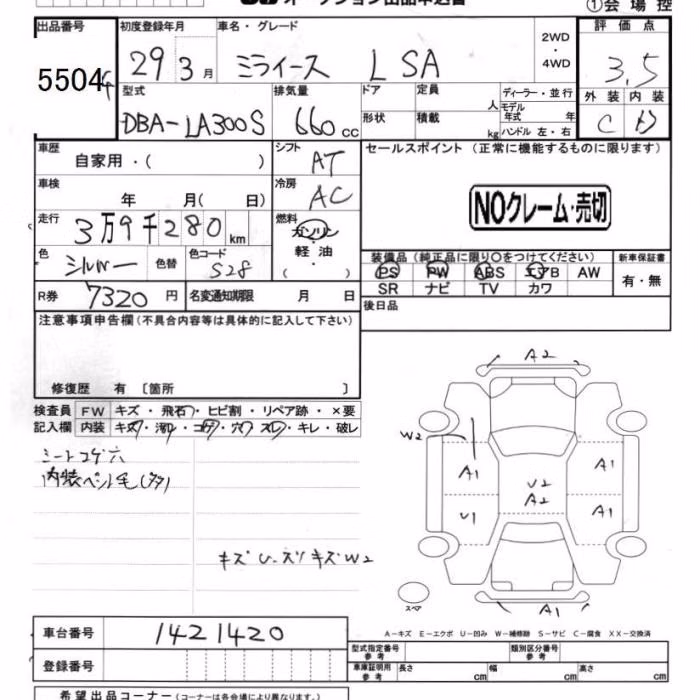 オークション出品申込書
①会場控
出品番号 初度登録年月 車名・グレード 2WD・4WD 評価点
5504 29 3月 ミライース L SA 3.5
型式 排気量 ドア 定員 人 ディーラー・並行 外装 内装
DBA-LA300S 660cc 形状 積載 kg モデル年式 年 ハンドル 左・右 C D
車歴 自家用・( ) シフト AT セールスポイント(正常に機能するものに限ります)
車検 年 月( 日) 冷房 AC
NOクレーム・売切
走行 3万9千280km 燃料 ガソリン 軽油 ・( )
色 シルバー 色替 色コード S28
装備品(純正品に限り○をつけてください) 新車保証書
PS PW ABS エアB AW 有・無
SR ナビ TV カワ
R券 7320円 名変通知期限 月 日 後日品
注意事項申告欄(不具合内容等は具体的に記入して下さい)
修復歴 有 〔箇所 〕
検査員 FW キズ・飛石・ヒビ割・リペア跡・×要
記入欄 内装 キズ・汚・コゲ・穴・スレ・キレ・破レ
シートコゲ穴
内装ペット毛(多)
キズ U・スリキズ W2
A2
W2
A1 A1
U2
A2
U1 A1
A1
スペア
A-キズ E-エクボ U-凹み W-補修跡 S-サビ C-腐食 XX-交換済
車台番号 1421420
型式指定番号 参考 類別区分番号 参考
登録番号 車庫証明用 参考 長さ cm 幅 cm 高さ cm
希望出品コーナー(コーナーは各会場により異なります。)